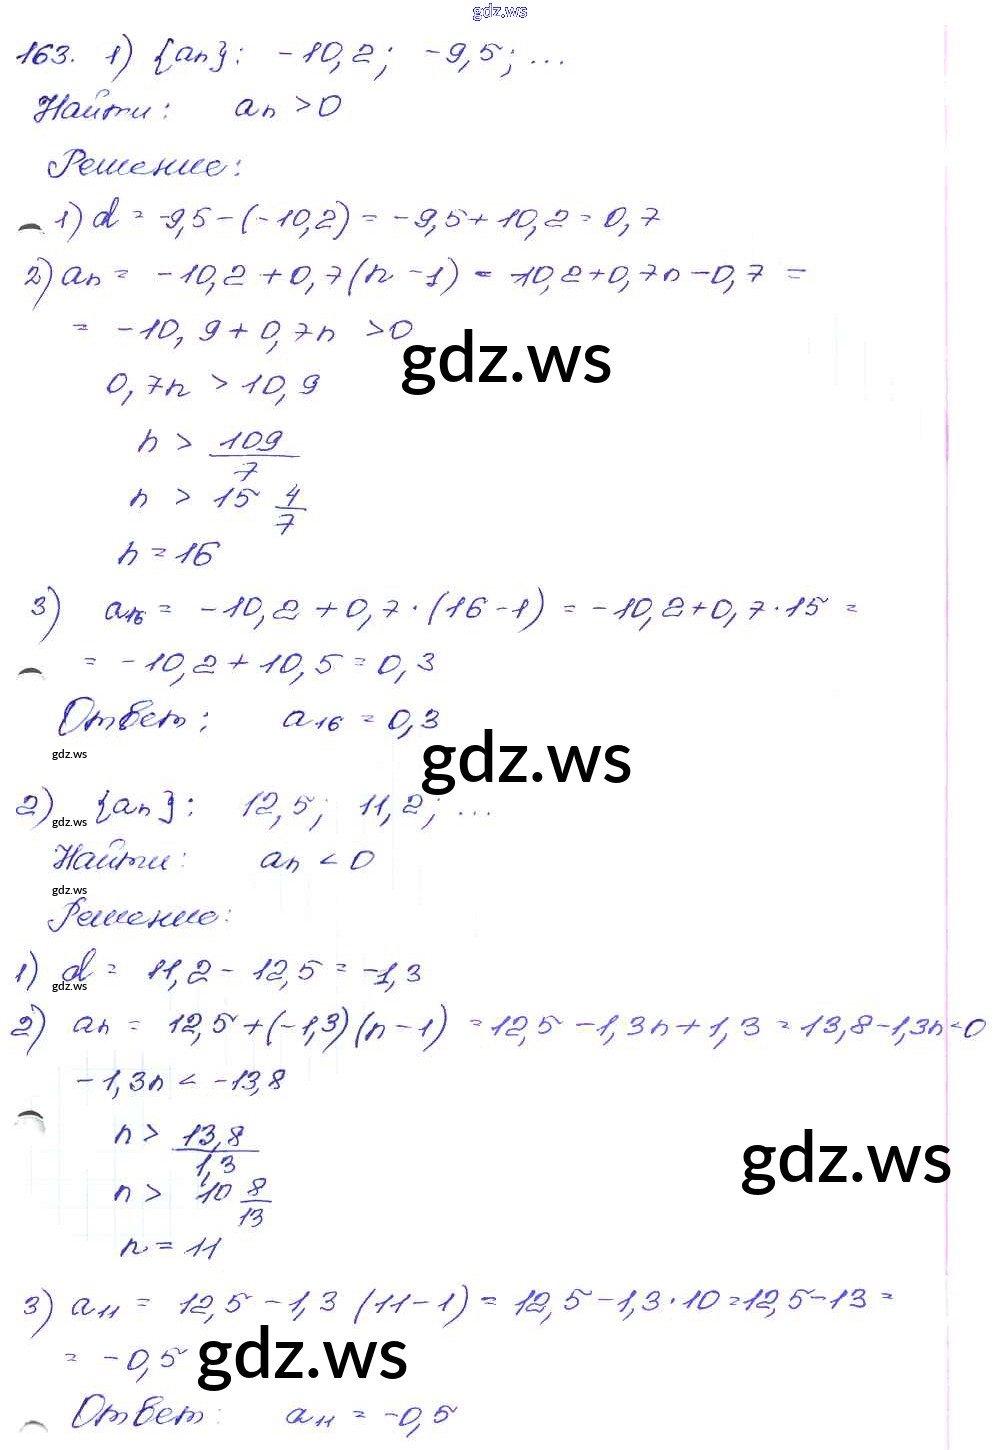 gdz.ws
163. 1) {an}: -10,2; -9,5; ...
Найти: an > 0
Решение:
1) d = -9,5 - (-10,2) = -9,5 + 10,2 = 0,7
2) an = -10,2 + 0,7(n - 1) = -10,2 + 0,7n - 0,7 =
= -10,9 + 0,7n > 0
gdz.ws
0,7n > 10,9
n > 109/7
n > 15 4/7
n = 16
3) a16 = -10,2 + 0,7 · (16 - 1) = -10,2 + 0,7 · 15 =
= -10,2 + 10,5 = 0,3
Ответ: a16 = 0,3
gdz.ws
gdz.ws
2) {an}: 12,5; 11,2; ...
gdz.ws
Найти: an < 0
gdz.ws
Решение:
1) d = 11,2 - 12,5 = -1,3
gdz.ws
2) an = 12,5 + (-1,3)(n - 1) = 12,5 - 1,3n + 1,3 = 13,8 - 1,3n < 0
-1,3n < -13,8
n > 13,8/1,3
gdz.ws
n > 10 8/13
n = 11
3) a11 = 12,5 - 1,3 (11 - 1) = 12,5 - 1,3 · 10 = 12,5 - 13 =
= -0,5
gdz.ws
Ответ: a11 = -0,5